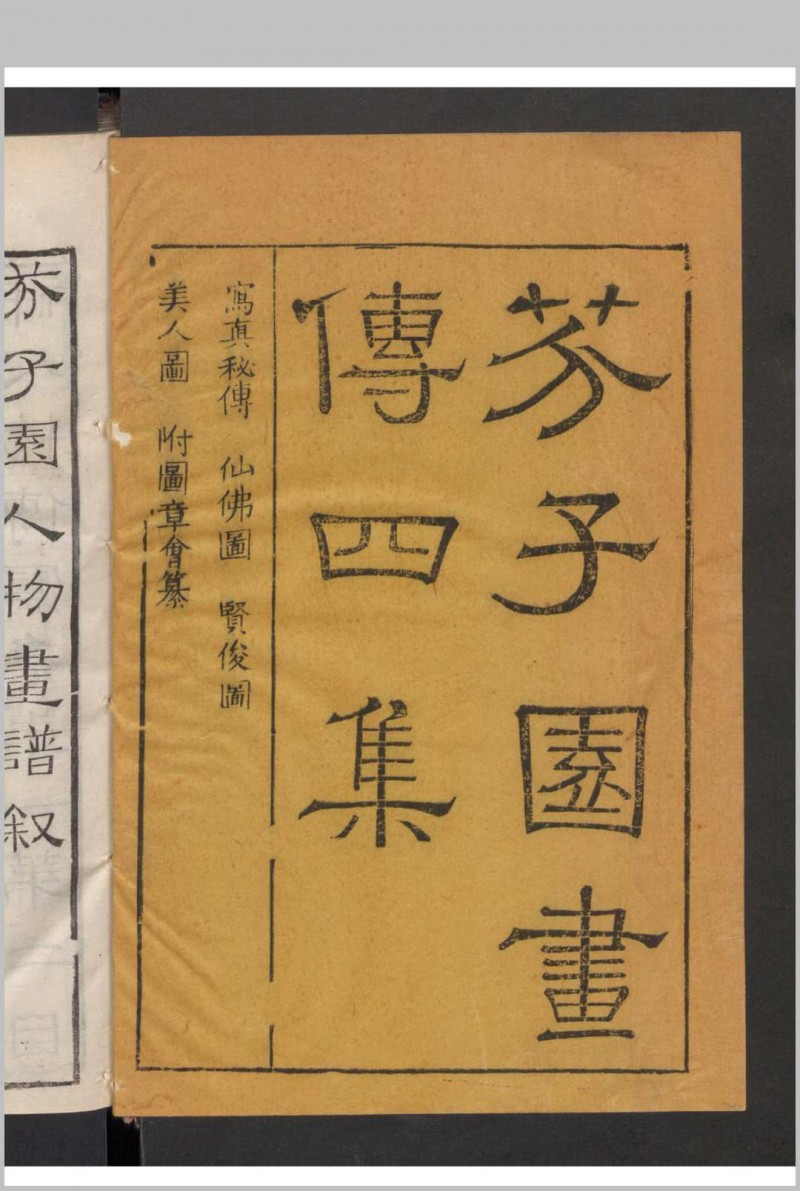 芥子園畫
傳四集
寫真秘傳 仙佛圖 賢俊圖
美人圖 附圖章會纂
芥子園人物畫譜叙